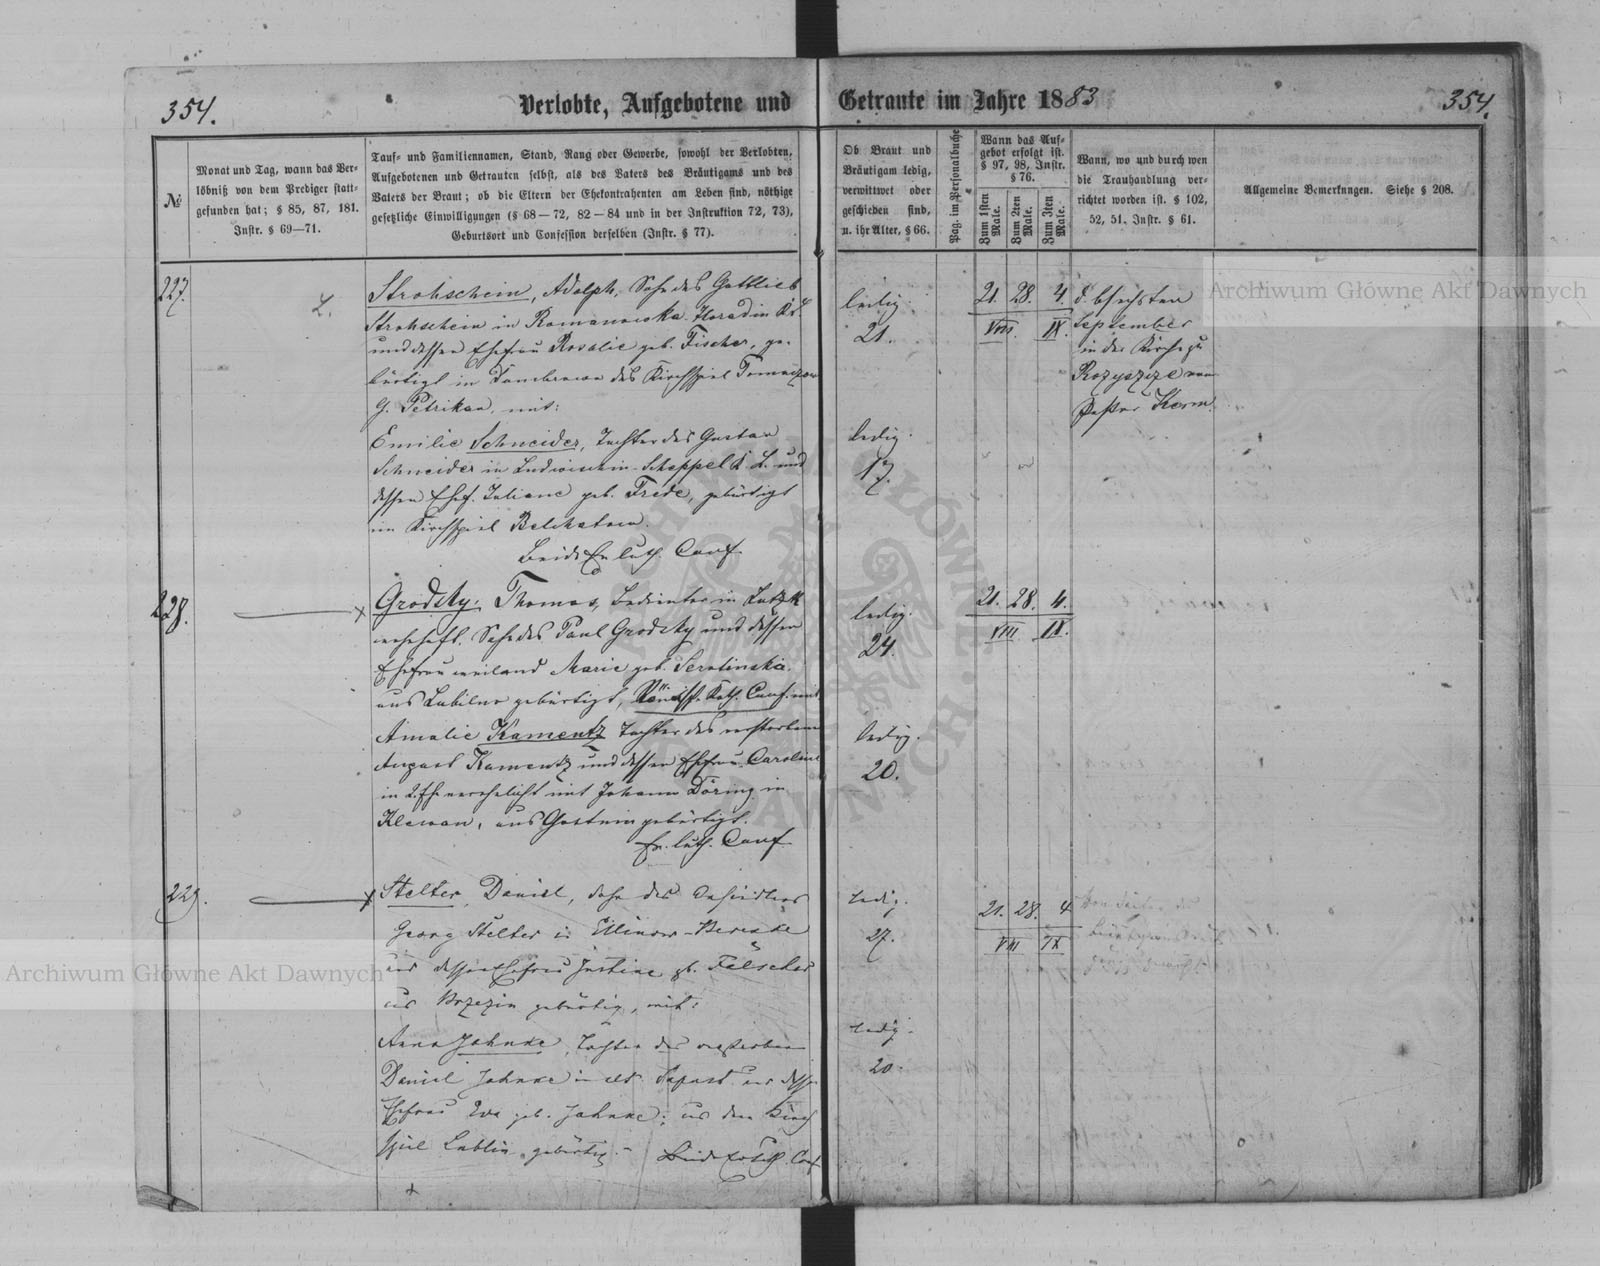 354.
Verlobte, Aufgebotene und Getraute im Jahre 1883
354.
№
Monat und Tag, wann das Ver-
löbniß von dem Prediger statt-
gefunden hat; § 85, 87, 181.
Instr. § 69—71.
Tauf- und Familiennamen, Stand, Rang oder Gewerbe, sowohl der Verlobten,
Aufgebotenen und Getrauten selbst, als des Vaters des Bräutigams und des
Vaters der Braut; ob die Eltern der Ehekontrahenten am Leben sind, nöthige
gesetzliche Einwilligungen (§ 68—72, 82—84 und in der Instruktion 72, 73),
Geburtsort und Confession derselben (Instr. § 77).
Ob Braut und
Bräutigam ledig,
verwittwet oder
geschieden sind,
u. ihr Alter, § 66.
Pag. im Personalbuche
Wann das Auf-
gebot erfolgt ist.
§ 97, 98, Instr.
§ 76.
Zum 1sten Male.
Zum 2ten Male.
Zum 3ten Male.
Wann, wo und durch wen
die Trauhandlung ver-
richtet worden ist. § 102,
52, 51. Instr. § 61.
Allgemeine Bemerknngen. Siehe § 208.
227.
Strohschein, Adolph, Sohn des Gottlieb
Strohschein in Romanowka
und dessen Ehefrau Rosalie geb. Fischer, ge-
bürtigt in Dombrowa des Kirchspiel Tomaszow
G. Petrikau, mit:
Emilie Schneider, Tochter des Gustav
Schneider in Ludwischin-Scheppel K. L. und
dessen Ehef. Juliane geb. Frede, gebürtigt
im Kirchspiel Belchatow.
Beide Ev. luth. Conf.
ledig.
21.
ledig.
17.
21. 28. 4.
VIII. IX.
September
in der Kirche zu
Rozyszcze vom
Pastor Kerm.
228.
Grodsky, Thomas, Bedienter in Lutzk
wohnhaft. Sohn des Paul Grodsky und dessen
Ehefrau weiland Marie geb. Serotinska
aus gebürtigt, Römisch. Kath. Conf. mit
Amalie Kamentz Tochter des verstorbenen
August Kamentz und dessen Ehefrau Caroline
in 2. Ehe verehelicht mit Johann Döring in
Klewan, aus Gostynin gebürtigt.
Ev. luth. Conf
ledig.
24.
ledig.
20.
21. 28. 4.
VIII IX.
229.
Stelter, Daniel, Sohn des Ansiedlers
Georg Stelter in Elinow-
und dessen Ehefrau Justine gb. Felscher
aus Brzezin gebürtig, mit:
Anna Jahnke, Tochter des verstorbenen
Daniel Jahnke in und dessen
Ehefrau Eva geb. Jahnke; aus dem Kirch
spiel Lublin gebürtig. – Beide Conf
ledig.
27.
ledig.
20.
21. 28. 4
VIII IX
Archiwum Główne Akt Dawnych
Archiwum Główne Akt Dawnych
ARCHIWUM GŁÓWNE AKT DAWNYCH